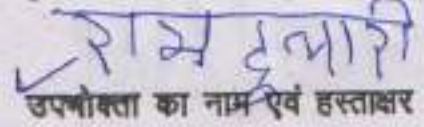 राम दुलारी
उपभोक्ता का नाम एवं हस्ताक्षर